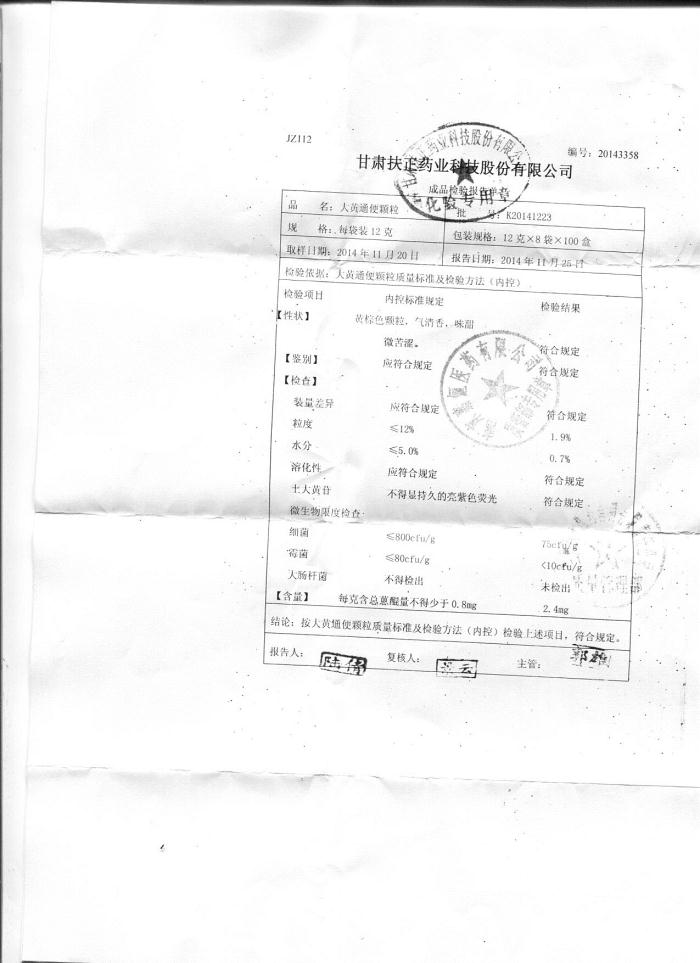 JZ112
编号：20143358
甘肃扶正药业科技股份有限公司
成品检验报告单
化验专用章
品 名：大黄通便颗粒 批 号：K20141223
规 格：每袋装12克 包装规格：12克×8袋×100盒
取样日期：2014年11月20日 报告日期：2014年11月25日
检验依据：大黄通便颗粒质量标准及检验方法（内控）
检验项目 内控标准规定 检验结果
【性状】 黄棕色颗粒，气清香，味甜
微苦涩。 符合规定
【鉴别】 应符合规定 符合规定
【检查】
装量差异 应符合规定 符合规定
粒度 ≤12% 1.9%
水分 ≤5.0% 0.7%
溶化性 应符合规定 符合规定
土大黄苷 不得显持久的亮紫色荧光 符合规定
微生物限度检查
细菌 ≤800cfu/g 75cfu/g
霉菌 ≤80cfu/g <10cfu/g
大肠杆菌 不得检出 未检出
【含量】 每克含总蒽醌量不得少于0.8mg 2.4mg
结论：按大黄通便颗粒质量标准及检验方法（内控）检验上述项目，符合规定。
报告人： 陆倩 复核人： 主管： 郭雄